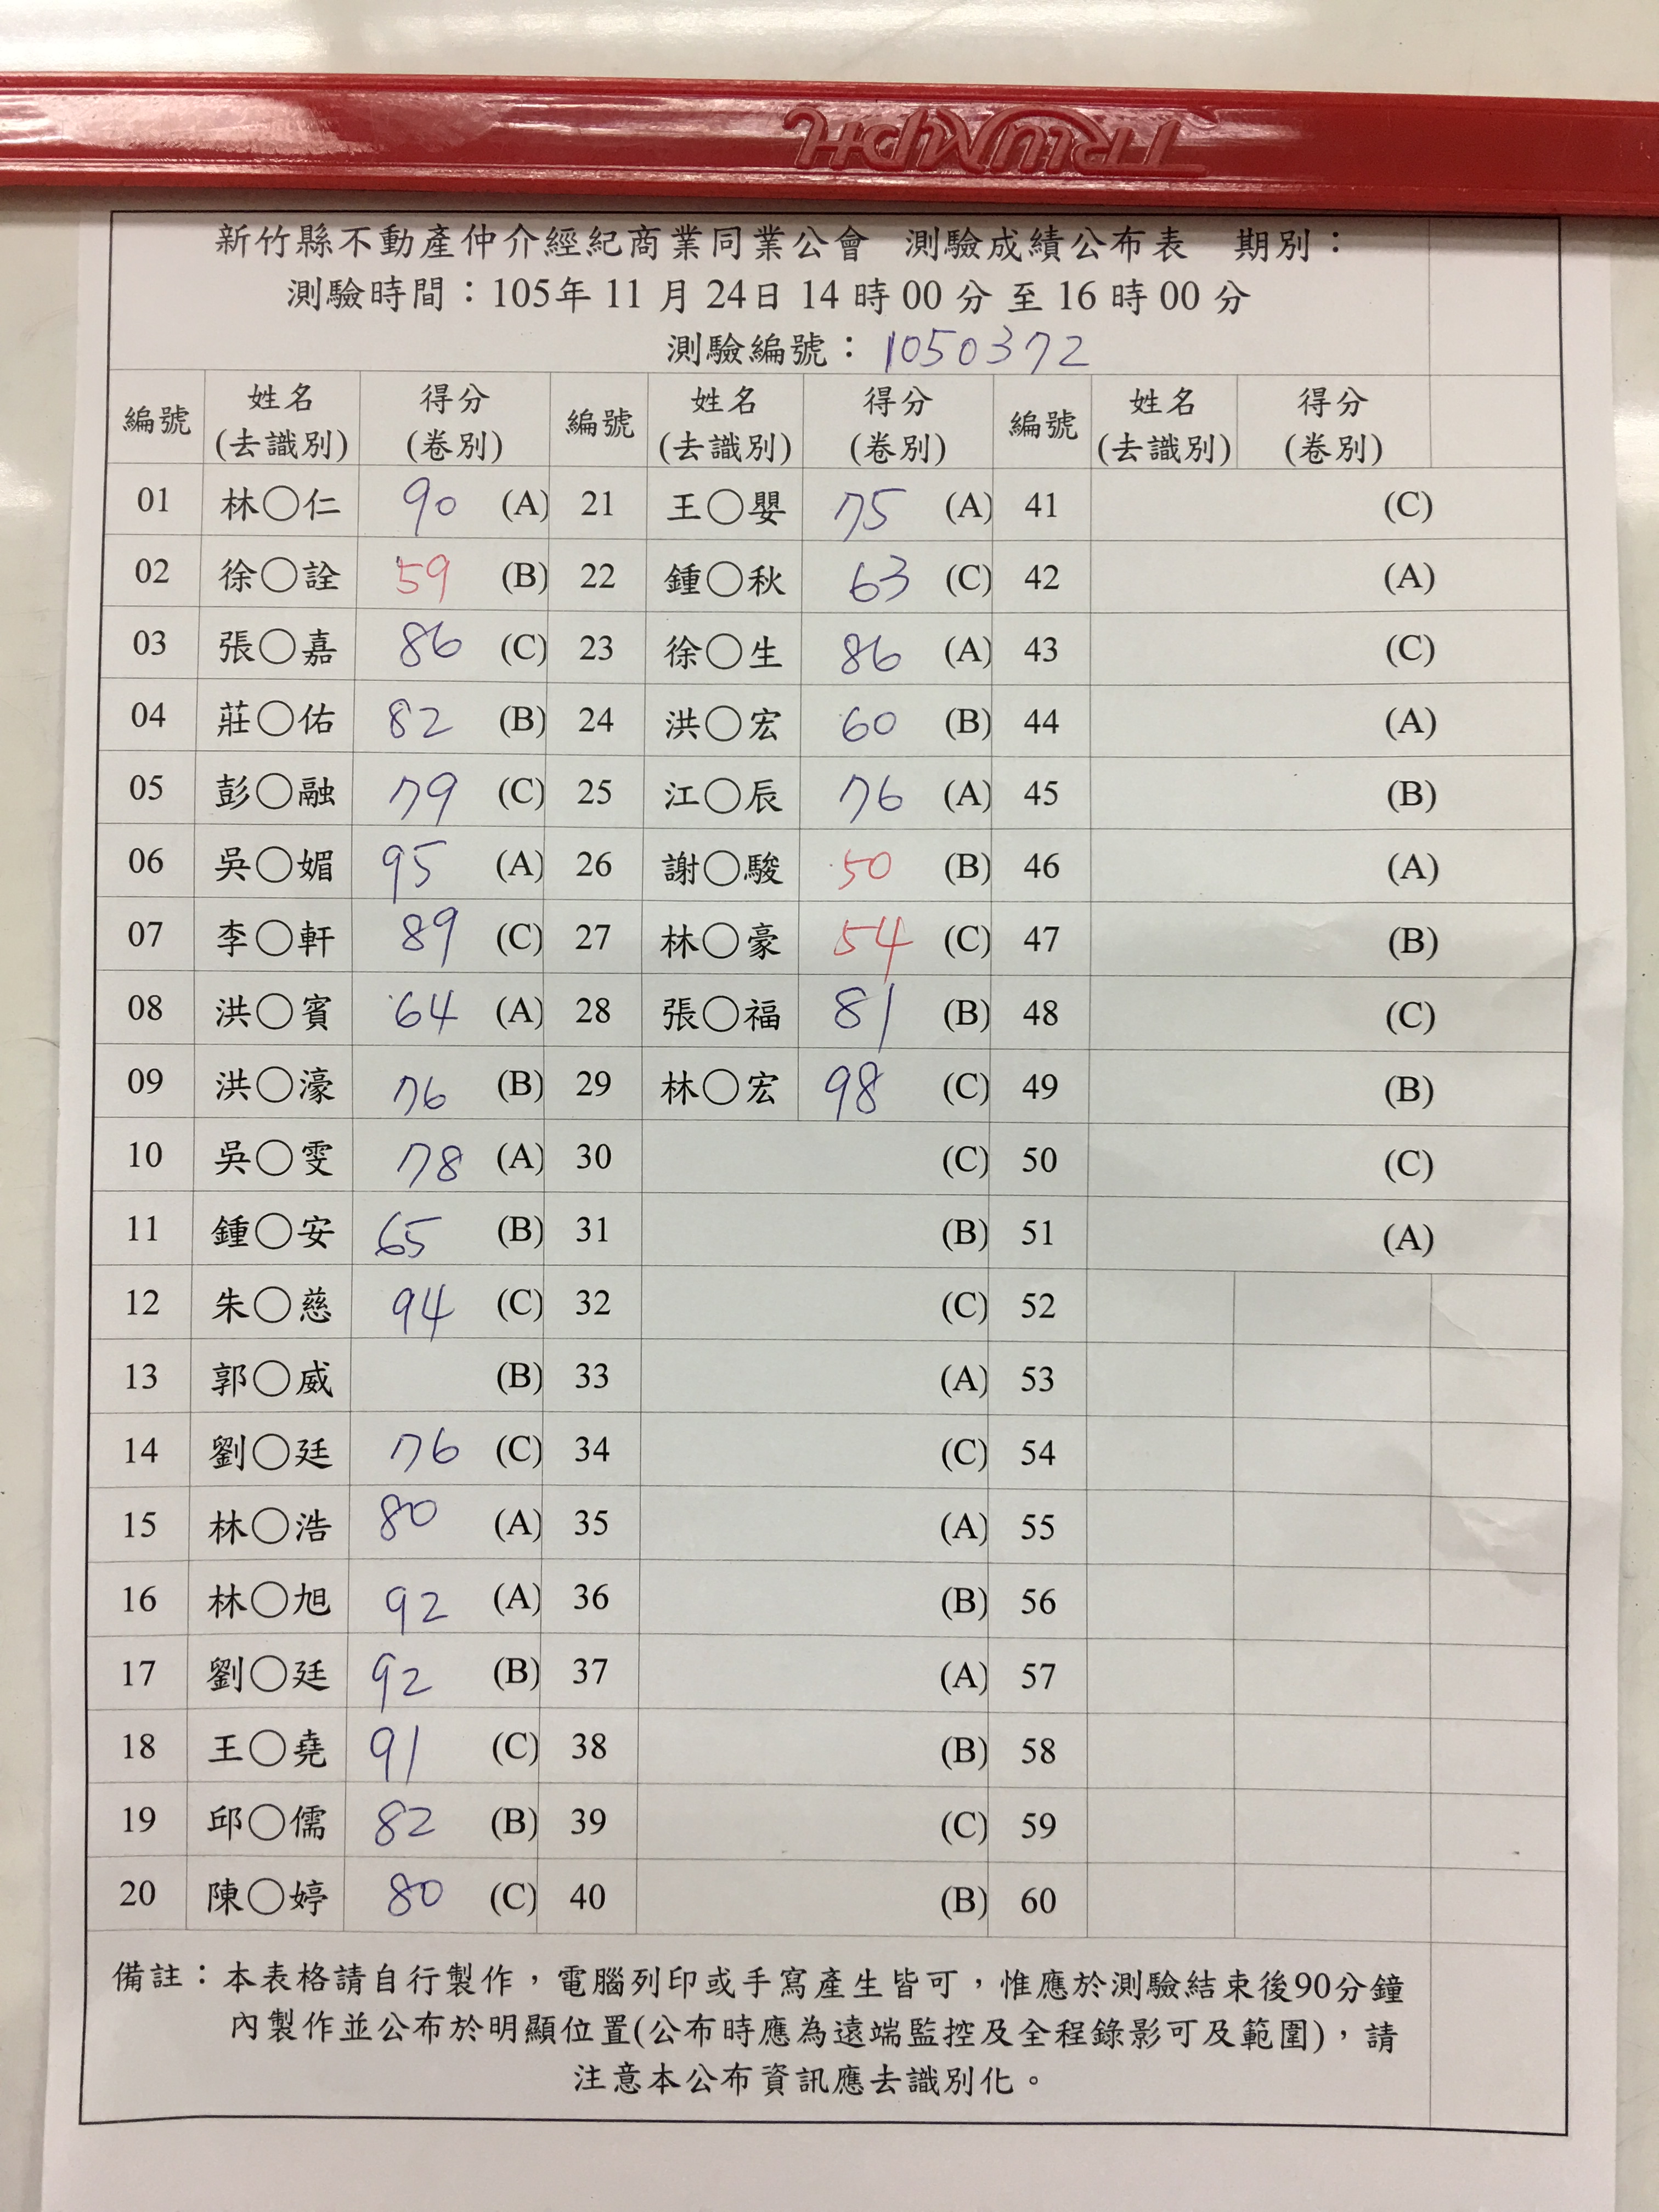 TRIUMPH
新竹縣不動產仲介經紀商業同業公會 測驗成績公布表 期別：
測驗時間：105年 11 月 24日 14 時 00 分 至 16 時 00 分
測驗編號：1050372
編號 姓名(去識別) 得分(卷別) 編號 姓名(去識別) 得分(卷別) 編號 姓名(去識別) 得分(卷別)
01 林○仁 90 (A) 21 王○嬰 75 (A) 41 (C)
02 徐○詮 59 (B) 22 鍾○秋 63 (C) 42 (A)
03 張○嘉 86 (C) 23 徐○生 86 (A) 43 (C)
04 莊○佑 82 (B) 24 洪○宏 60 (B) 44 (A)
05 彭○融 79 (C) 25 江○辰 76 (A) 45 (B)
06 吳○媚 95 (A) 26 謝○駿 50 (B) 46 (A)
07 李○軒 89 (C) 27 林○豪 54 (C) 47 (B)
08 洪○賓 64 (A) 28 張○福 81 (B) 48 (C)
09 洪○濠 76 (B) 29 林○宏 98 (C) 49 (B)
10 吳○雯 78 (A) 30 (C) 50 (C)
11 鍾○安 65 (B) 31 (B) 51 (A)
12 朱○慈 94 (C) 32 (C) 52
13 郭○威 (B) 33 (A) 53
14 劉○廷 76 (C) 34 (C) 54
15 林○浩 80 (A) 35 (A) 55
16 林○旭 92 (A) 36 (B) 56
17 劉○廷 92 (B) 37 (A) 57
18 王○堯 91 (C) 38 (B) 58
19 邱○儒 82 (B) 39 (C) 59
20 陳○婷 80 (C) 40 (B) 60
備註：本表格請自行製作，電腦列印或手寫產生皆可，惟應於測驗結束後90分鐘
內製作並公布於明顯位置(公布時應為遠端監控及全程錄影可及範圍)，請
注意本公布資訊應去識別化。